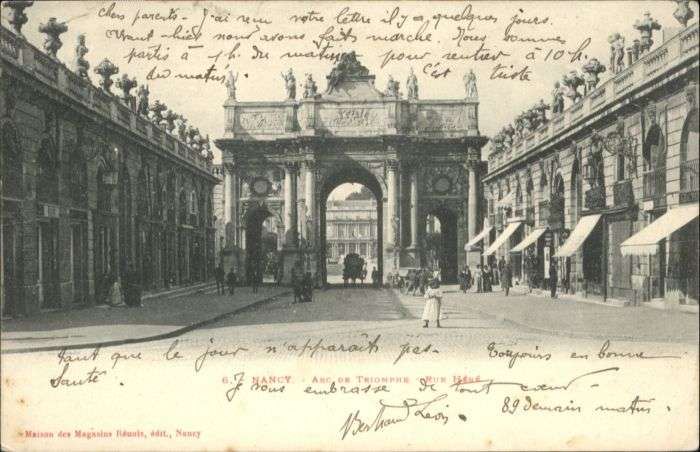 chers parents. J'ai reçu votre lettre il y a quelques jours.
Avant hier nous avons faits marche. Nous sommes
partis à 1 h. du matin pour rentrer à 10 h.
du matin. C'est triste
Tant que le jour n'apparait pas. Toujours en bonne
Santé. Je vous embrasse de tout cœur
6. NANCY. - ARC DE TRIOMPHE - RUE HÉRÉ
89 demain matin.
Bertrand Léon
Maison des Magasins Réunis, édit., Nancy